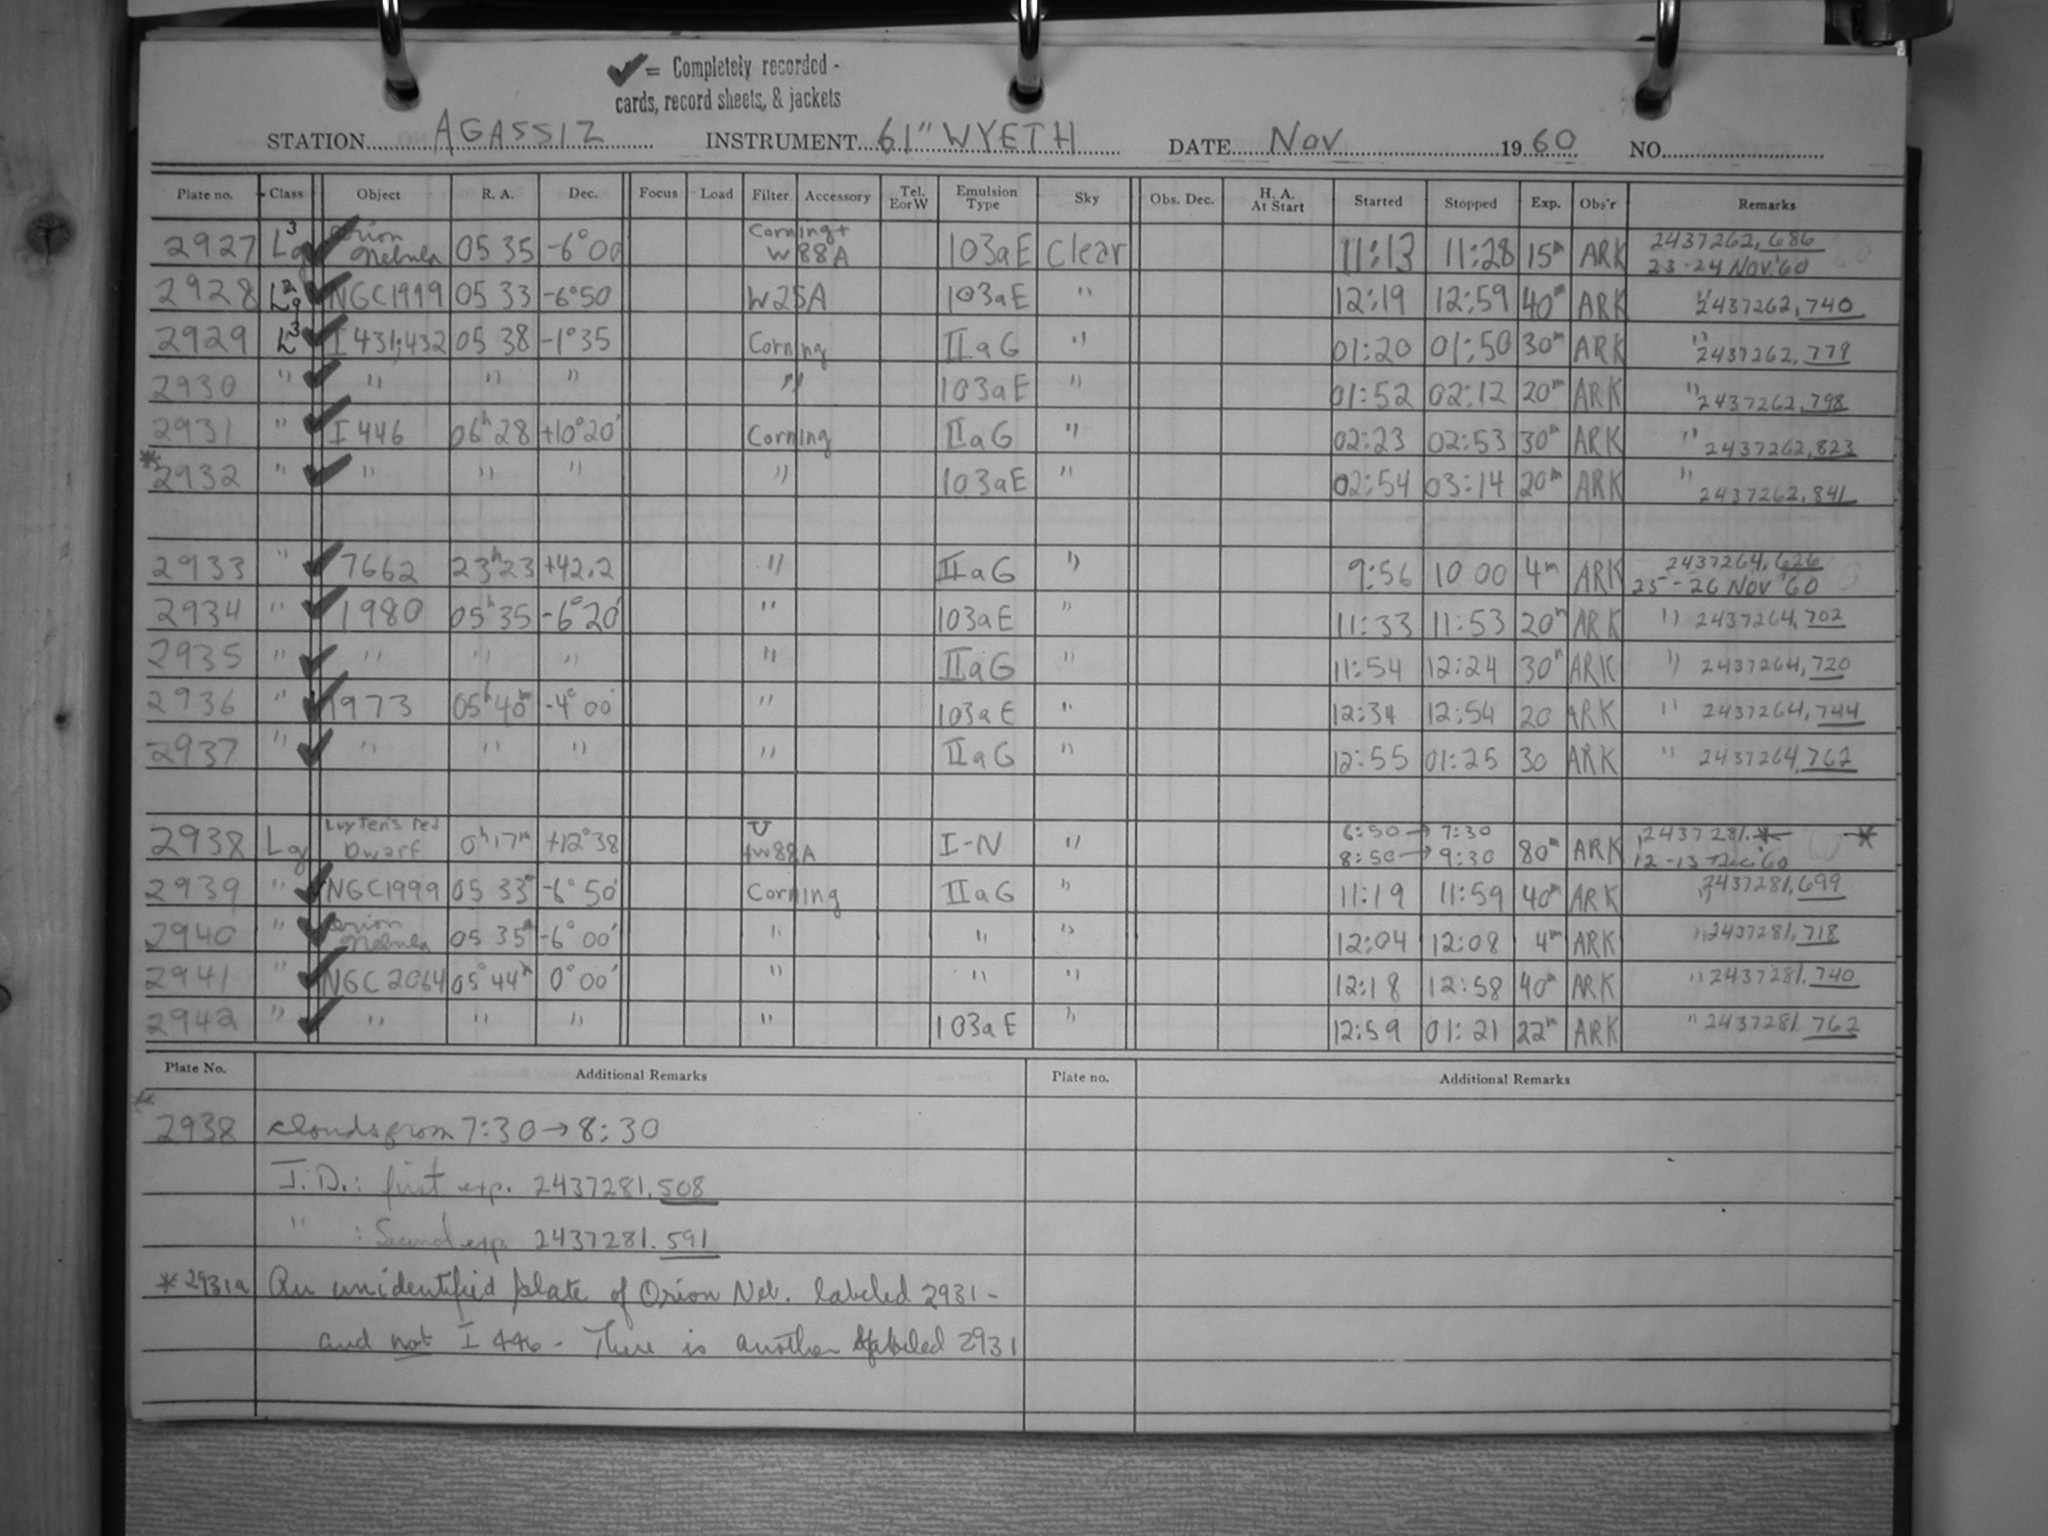 ✓ = Completely recorded -
cards, record sheets, & jackets
STATION AGASSIZ INSTRUMENT 61" WYETH DATE Nov 1960 NO.
Plate no. Class Object R. A. Dec. Focus Load Filter Accessory Tel. E or W Emulsion Type Sky Obs. Dec. H. A. At Start Started Stopped Exp. Obs'r Remarks
2927 L3g ✓ Orion Nebula 05 35 -6°00 Corning + W88A 103aE Clear 11:13 11:28 15m ARK 2437262,686 23-24 Nov '60
2928 L2g ✓ NGC1999 05 33 -6°50 W25A 103aE " 12:19 12:59 40m ARK " 2437262,740
2929 L3 ✓ I 431;432 05 38 -1°35 Corning IIaG " 01:20 01:50 30m ARK " 2437262,779
2930 " ✓ " " " " 103aE " 01:52 02:12 20m ARK " 2437262,798
2931 " ✓ I 446 06h28 +10°20' Corning IIaG " 02:23 02:53 30m ARK " 2437262,823
*2932 " ✓ " " " " 103aE " 02:54 03:14 20m ARK " 2437262,841
2933 " ✓ 7662 23h23 +42.2 " IIaG " 9:56 10 00 4m ARK 2437264,626 25-26 Nov '60
2934 " ✓ 1980 05h35 -6°20' " 103aE " 11:33 11:53 20m ARK " 2437264,702
2935 " ✓ " " " " IIaG " 11:54 12:24 30m ARK " 2437264,720
2936 " ✓ 1973 05h40m -4°00' " 103aE " 12:34 12:54 20 ARK " 2437264,744
2937 " ✓ " " " " IIaG " 12:55 01:25 30 ARK " 2437264,762
2938 Lg Luyten's red Dwarf 0h17m +12°38 U +W88A I-N " 6:50→7:30 8:50→9:30 80m ARK 2437281.* * 12-13 Dec '60
2939 " ✓ NGC1999 05 33m -6°50' Corning IIaG " 11:19 11:59 40m ARK " 2437281,699
2940 " ✓ Orion Nebula 05 35m -6°00' " " " 12:04 12:08 4m ARK " 2437281,718
2941 " ✓ NGC 2064 05 44m 0°00' " " " 12:18 12:58 40m ARK " 2437281.740
2942 " ✓ " " " " 103aE " 12:59 01:21 22m ARK " 2437281.762
Plate No. Additional Remarks Plate no. Additional Remarks
* 2938 clouds from 7:30→8:30
J.D.: first exp. 2437281.508
" : Second exp. 2437281.591
*2931a An unidentified plate of Orion Neb. labeled 2931 -
and not I 446 - There is another labeled 2931